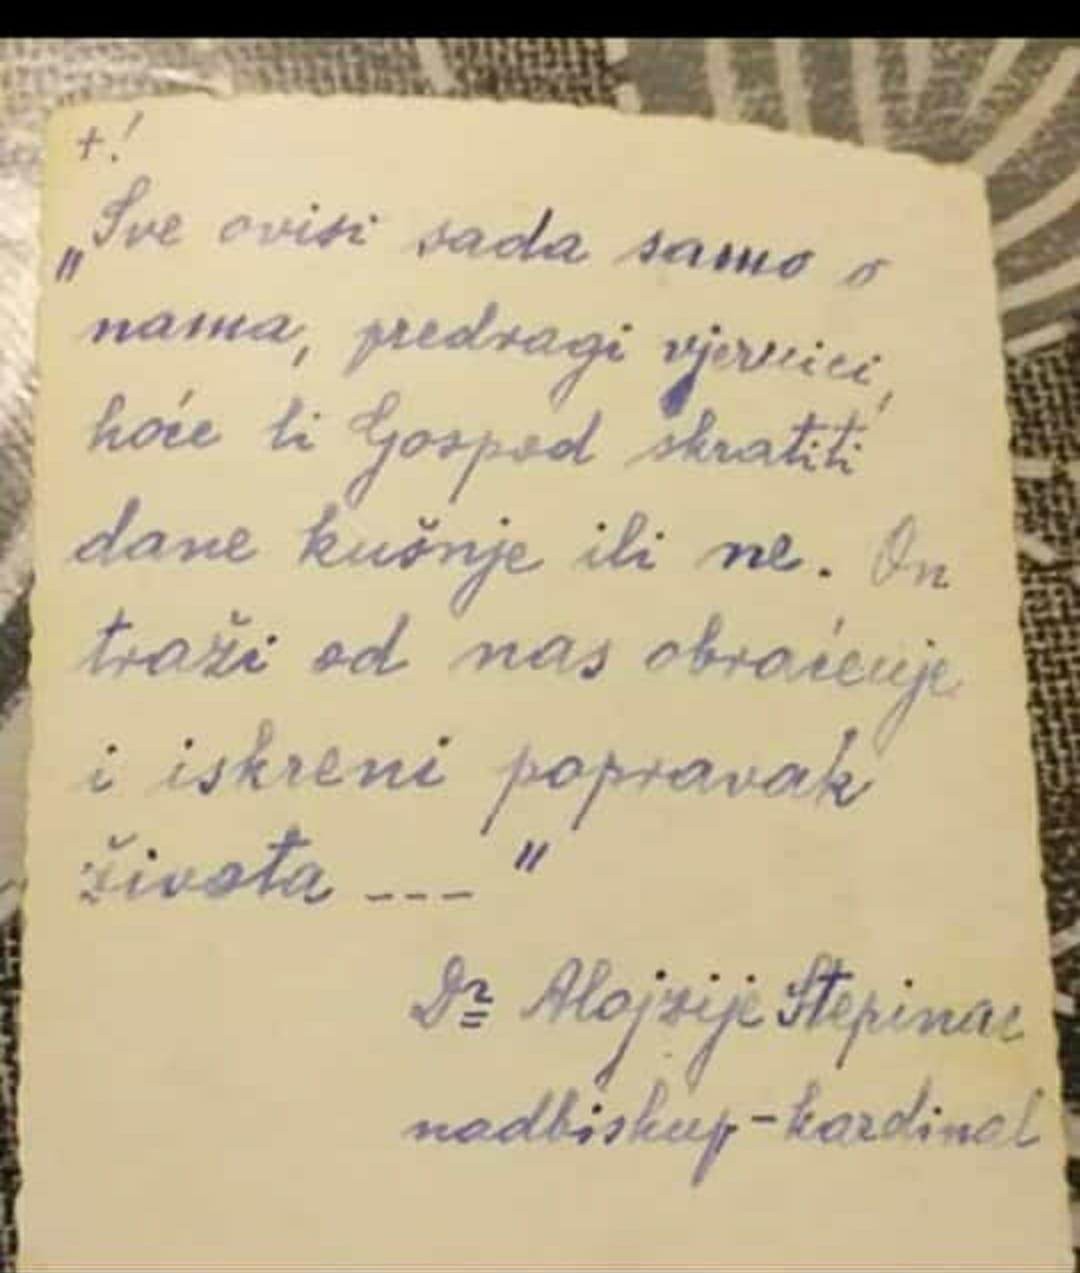 +!
„Sve ovisi sada samo o
nama, predragi vjernici,
hoće li Gospod skratiti
dane kušnje ili ne. On
traži od nas obraćenje
i iskreni popravak
života --- "
Dr Alojzije Stepinac
nadbiskup-kardinal